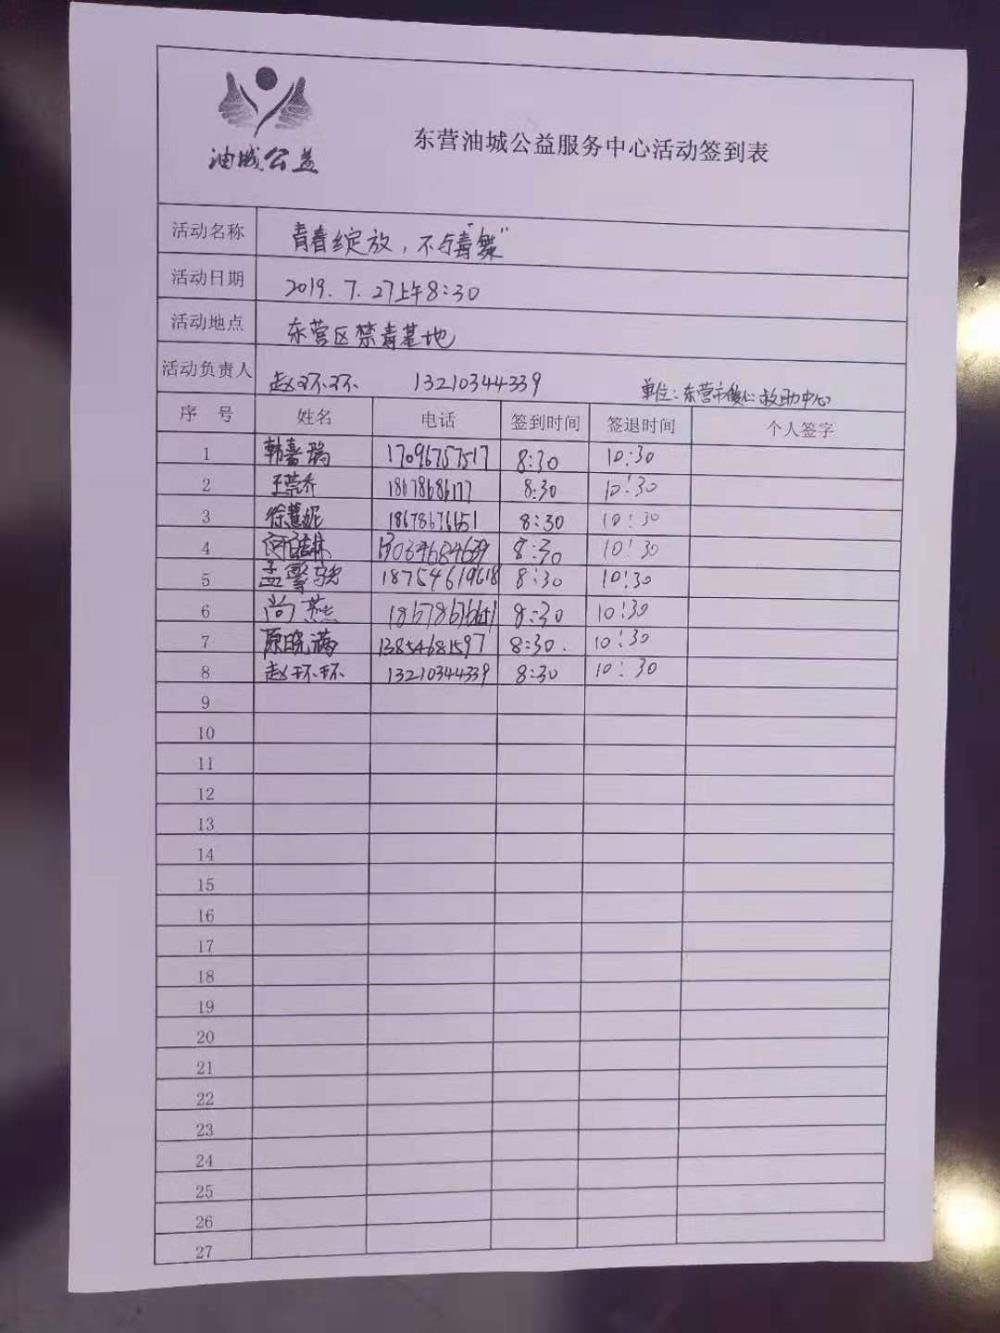 油城公益
东营油城公益服务中心活动签到表
活动名称 青春绽放，不与“毒舞”
活动日期 2019.7.27上午8:30
活动地点 东营区禁毒基地
活动负责人 赵环环 13210344339 单位：东营市俊心救助中心
序 号 姓名 电话 签到时间 签退时间 个人签字
1 韩嘉瑞 17096757517 8:30 10:30
2 王莹乔 18678686177 8:30 10:30
3 徐慧妮 18678676651 8:30 10:30
4 8:30 10:30
5 孟馨骁 18754619618 8:30 10:30
6 尚燕 18678676651 8:30 10:30
7 原晓满 13854681597 8:30. 10:30
8 赵环环 13210344339 8:30 10:30
9
10
11
12
13
14
15
16
17
18
19
20
21
22
23
24
25
26
27